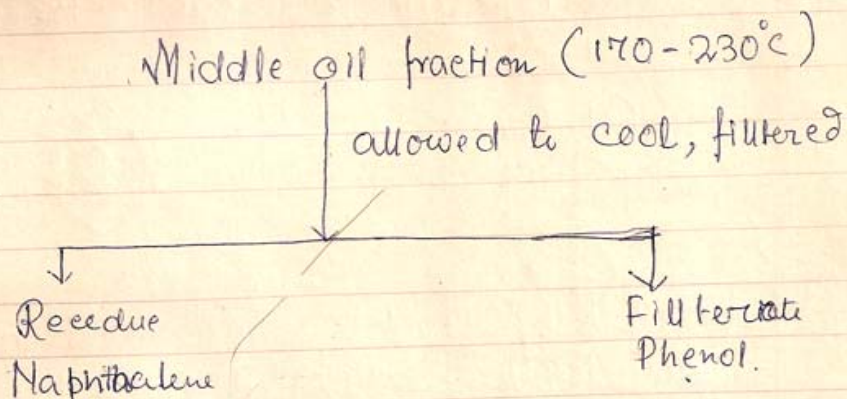 Middle oil fraction (170-230°C)
allowed to cool, filltered
Recedue
Naphthalene
Fillterate
Phenol.